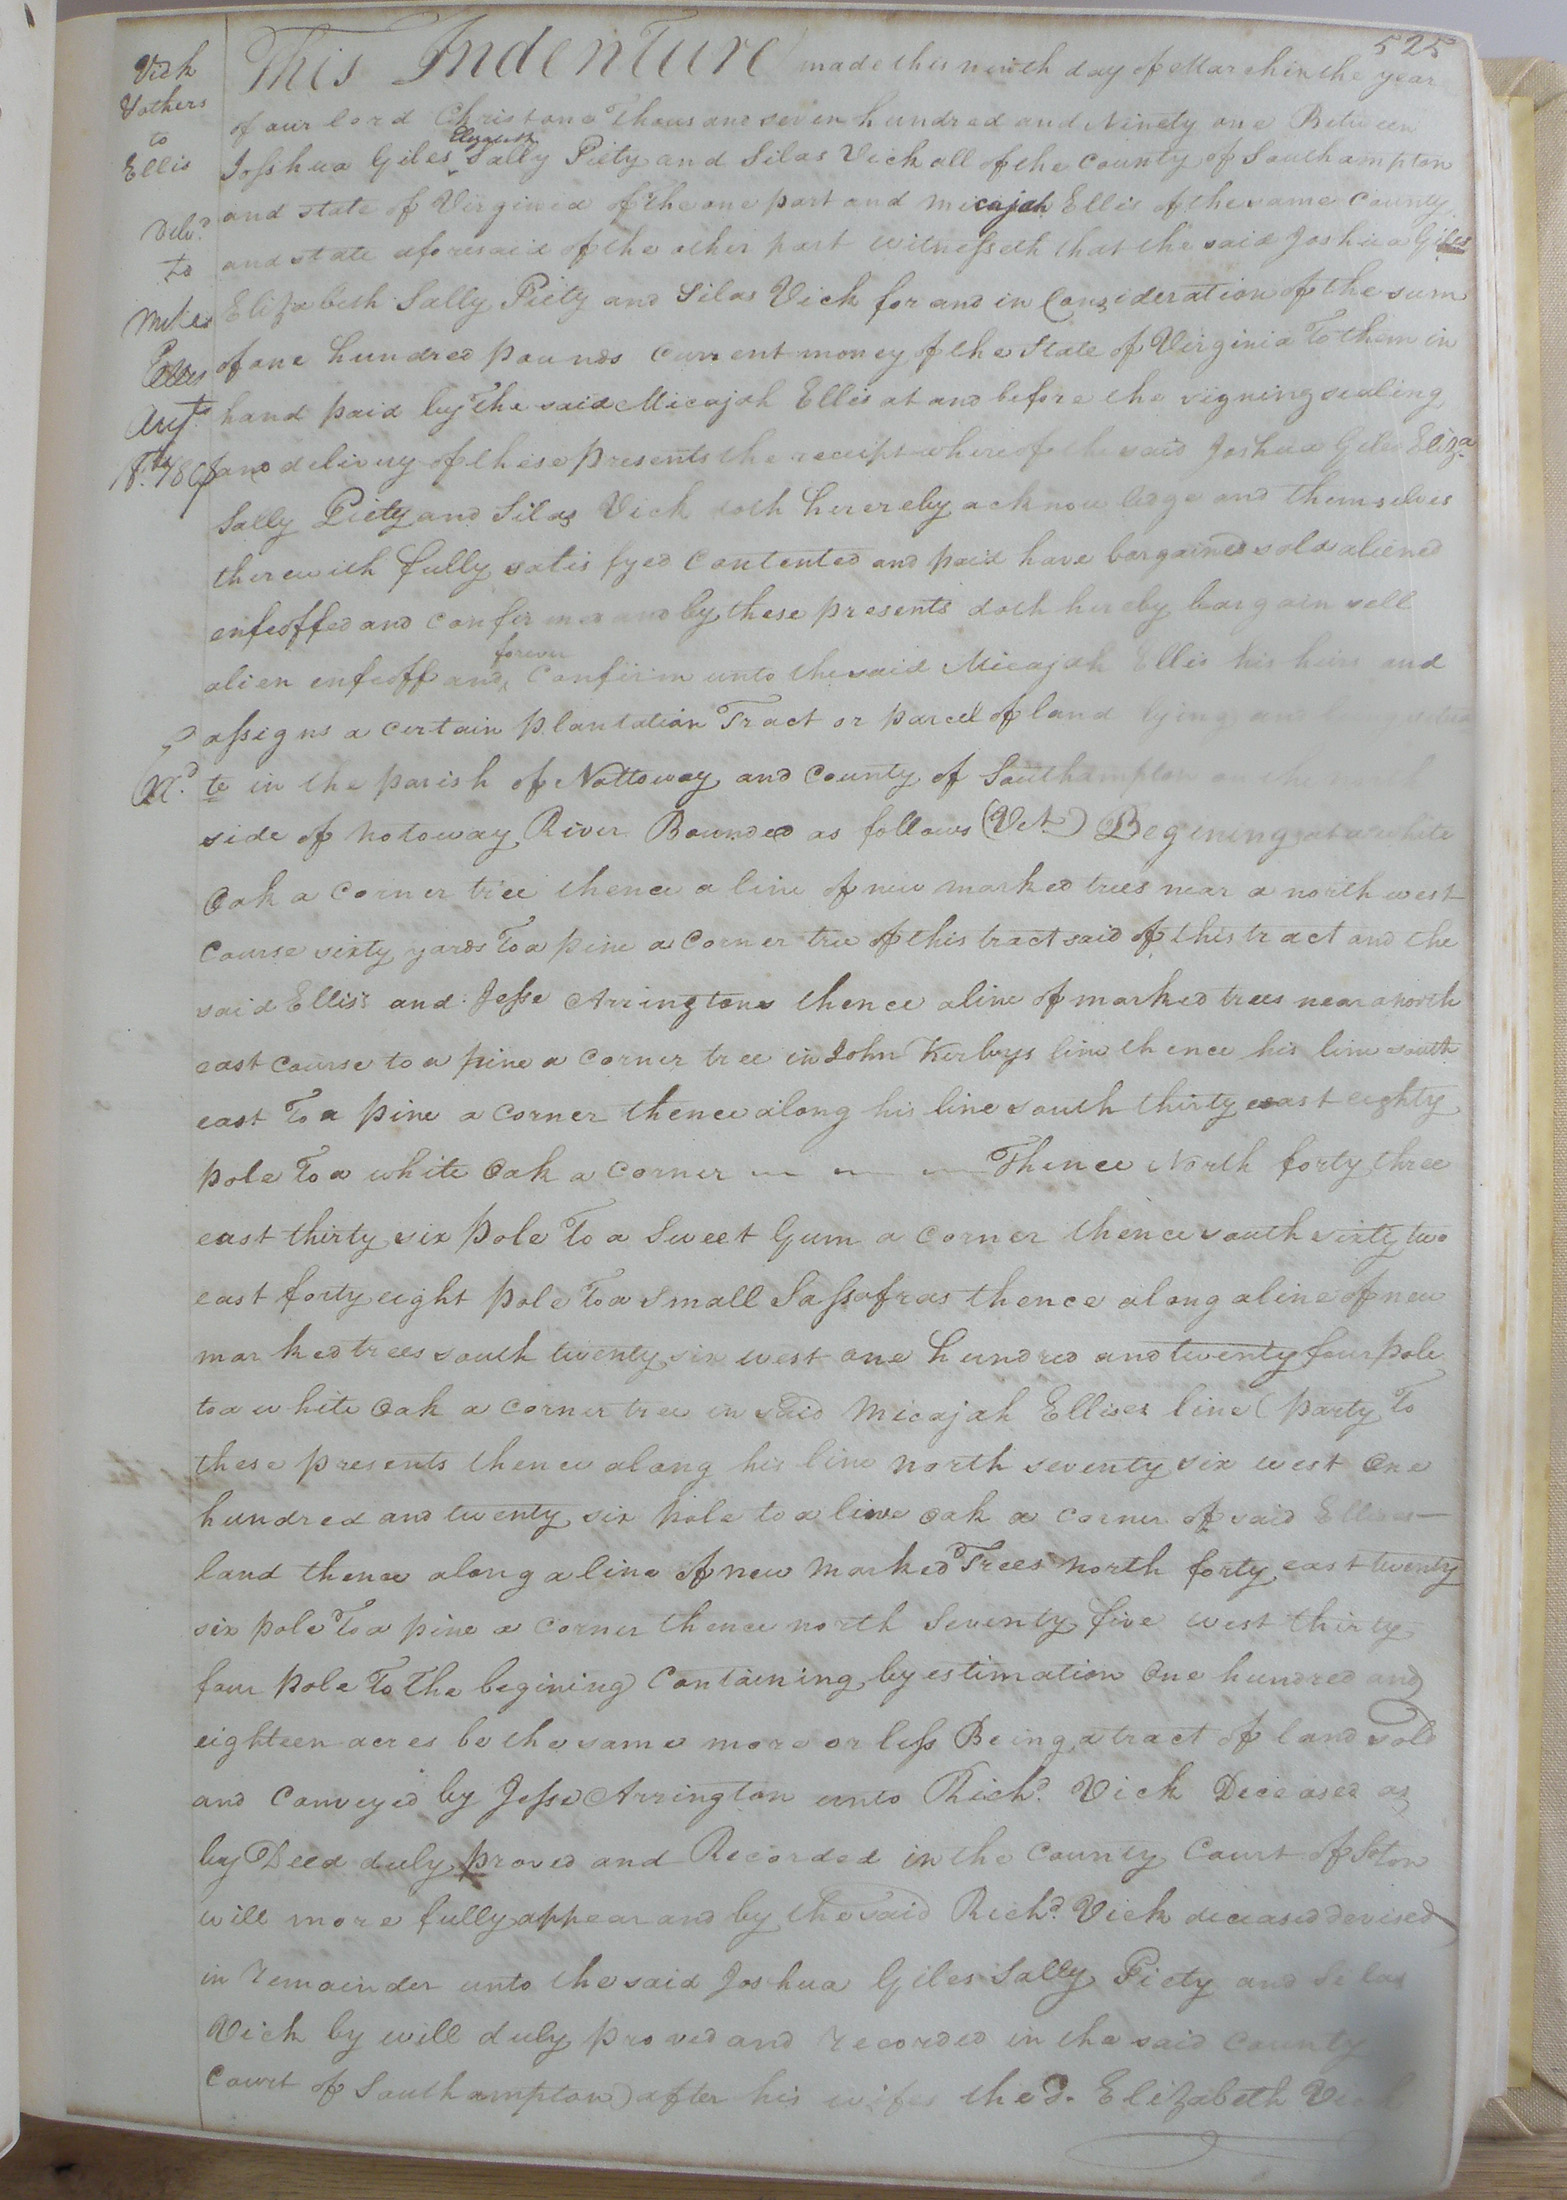 525
Vick
&others
to
Ellis
Delv.d
to
Ellis
18.th
Ex.d
This Indenture made this ninth day of March in the year
of our lord Christ one Thousand seven hundred and Ninety one Between
Joshua Giles Elizabeth Sally Piety and Silas Vick all of the County of Southampton
and state of Virginia of the one part and Micajah Ellis of the same County
and state aforesaid of the other part witnesseth that the said Joshua Giles
Elizabeth Sally Piety and Silas Vick for and in Consideration of the sum
of one hundred pounds Current money of the State of Virginia To them in
hand paid by The said Micajah Ellis at and before the signing sealing
and delivery of these presents the receipt whereof the said Joshua Giles Eliza
Sally Piety and Silas Vick doth herereby acknowledge and themselves
therewith fully satisfyed Contented and paid have bargained sold aliened
enfeoffed and Confirmed and by these presents doth hereby bargain sell
alien enfeoff and forever Confirm unto the said Micajah Ellis his heirs and
assigns a certain plantation Tract or parcel of land lying and
te in the parish of Nottoway and County of Southampton on the
side of Notoway River Bounded as follows (Vizt) Begining at a white
Oak a corner tree thence a line of new marked trees near a north west
Course sixty yards To a pine a Corner tree of this tract said of this tract and the
said Ellis's and Jesse Arringtons thence a line of marked trees near a north
east course to a pine a corner tree in John Kerbys line thence his line south
east To a pine a corner thence along his line south thirty east eighty
pole To a white Oak a corner — — — Thence North forty three
east thirty six pole To a Sweet Gum a corner thence south sixty two
east forty eight pole To a Small Sassafras thence along a line of new
marked trees south twenty six west one hundred and twenty four pole
to a white Oak a corner tree in said Micajah Ellises line (party To
these presents thence along his line north seventy six west One
hundred and twenty six pole to a live oak a corner of said Ellises
land thence along a line of new marked Trees north forty east twenty
six pole To a pine a corner thence north Seventy five west thirty
four pole To The begining Containing by estimation One hundred and
eighteen acres be the same more or less Being a tract of land sold
and Conveyed by Jesse Arrington unto Rich.d Vick Deceased as
by Deed duly proved and Recorded in the County Court of Soton
will more fully appear and by the said Rich.d Vick deceased devised
in remainder unto the said Joshua Giles Sally Piety and Silas
Vick by will duly proved and recorded in the said County
Court of Southampton) after his wifes the d. Elizabeth Vick